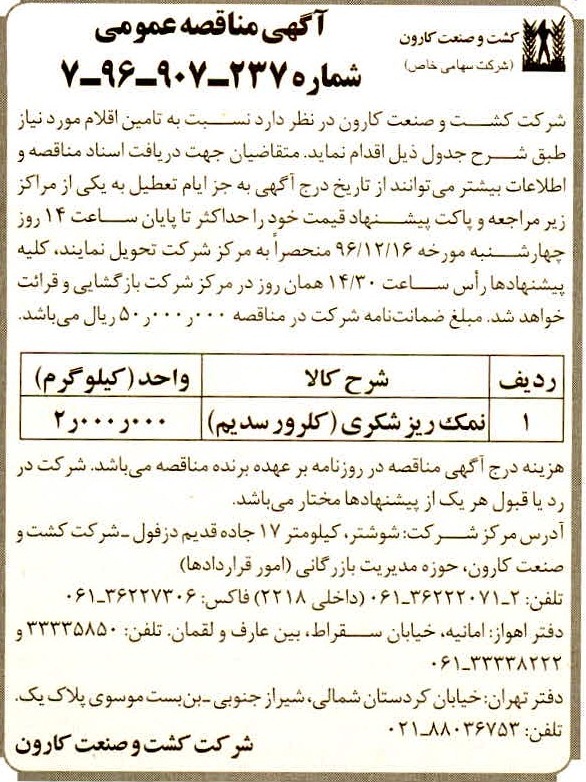 آگهی مناقصه عمومی
شماره ۲۳۷ـ۹۰۷ـ۹۶ـ۷
کشت و صنعت کارون
(شرکت سهامی خاص)
شرکت کشت و صنعت کارون در نظر دارد نسبت به تامین اقلام مورد نیاز
طبق شرح جدول ذیل اقدام نماید. متقاضیان جهت دریافت اسناد مناقصه و
اطلاعات بیشتر می‌توانند از تاریخ درج آگهی به جز ایام تعطیل به یکی از مراکز
زیر مراجعه و پاکت پیشنهاد قیمت خود را حداکثر تا پایان ساعت ۱۴ روز
چهارشنبه مورخه ۹۶/۱۲/۱۶ منحصراً به مرکز شرکت تحویل نمایند، کلیه
پیشنهادها رأس ساعت ۱۴/۳۰ همان روز در مرکز شرکت بازگشایی و قرائت
خواهد شد. مبلغ ضمانت‌نامه شرکت در مناقصه ۵۰ر۰۰۰ر۰۰۰ ریال می‌باشد.
ردیف شرح کالا واحد (کیلوگرم)
۱ نمک ریز شکری (کلرور سدیم) ۲ر۰۰۰ر۰۰۰
هزینه درج آگهی مناقصه در روزنامه بر عهده برنده مناقصه می‌باشد. شرکت در
رد یا قبول هر یک از پیشنهادها مختار می‌باشد.
آدرس مرکز شرکت: شوشتر، کیلومتر ۱۷ جاده قدیم دزفول ـ شرکت کشت و
صنعت کارون، حوزه مدیریت بازرگانی (امور قراردادها)
تلفن: ۲ـ۳۶۲۲۲۰۷۱ـ۰۶۱ (داخلی ۲۲۱۸) فاکس: ۳۶۲۲۷۳۰۶ـ۰۶۱
دفتر اهواز: امانیه، خیابان سقراط، بین عارف و لقمان. تلفن: ۳۳۳۳۵۸۵۰ و
۳۳۳۳۸۲۲۲ـ۰۶۱
دفتر تهران: خیابان کردستان شمالی، شیراز جنوبی ـ بن‌بست موسوی پلاک یک.
تلفن: ۸۸۰۳۶۷۵۳ـ۰۲۱
شرکت کشت و صنعت کارون